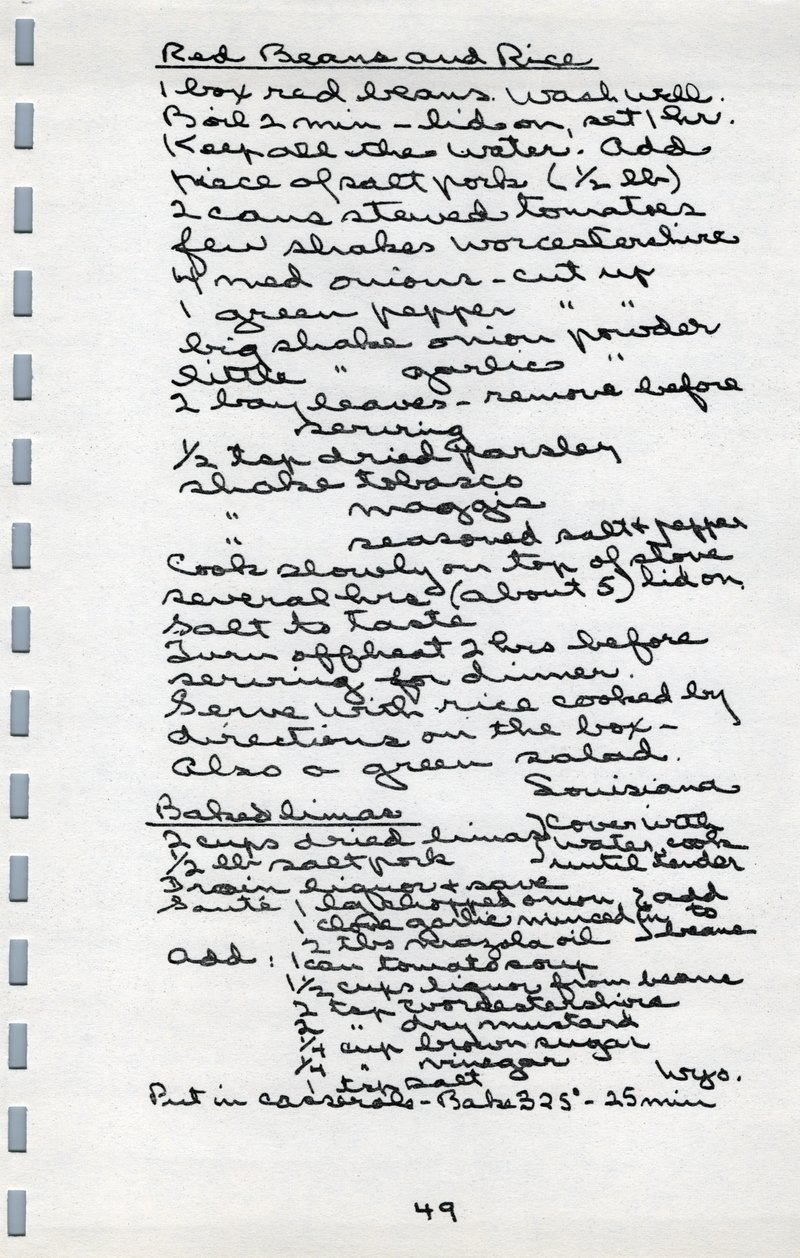 Red Beans and Rice
1 box red beans. Wash well.
Boil 2 min - lid on, set 1 hr.
Keep all the water. Add
piece of salt pork (1/2 lb)
2 cans stewed tomatoes
few shakes worcestershire
4 med onions - cut up
1 green pepper " "
big shake onion powder
little " garlic "
2 bay leaves - remove before
serving
1/2 tsp dried parsley
shake tobasco
" maggie
" seasoned salt & pepper
Cook slowly on top of stove
several hrs (about 5) lid on.
Salt to taste
Turn off heat 2 hrs before
serving for dinner.
Serve with rice cooked by
directions on the box -
Also a green salad.
Louisiana
Baked limas
2 cups dried limas } Cover with
1/2 lb salt pork } water, cook
until tender
Drain liquor + save
Sauté 1 lg chopped onion } add
1 clove garlic minced } in to
2 tbs Mazola oil } beans
Add: 1 can tomato soup
1 1/2 cups liquor from beans
2 tsp Worcestershire
2 " dry mustard
1/4 cup brown sugar
1/4 " vinegar
1 tsp salt Wyo.
Put in casserole - Bake 325° - 25 min
49